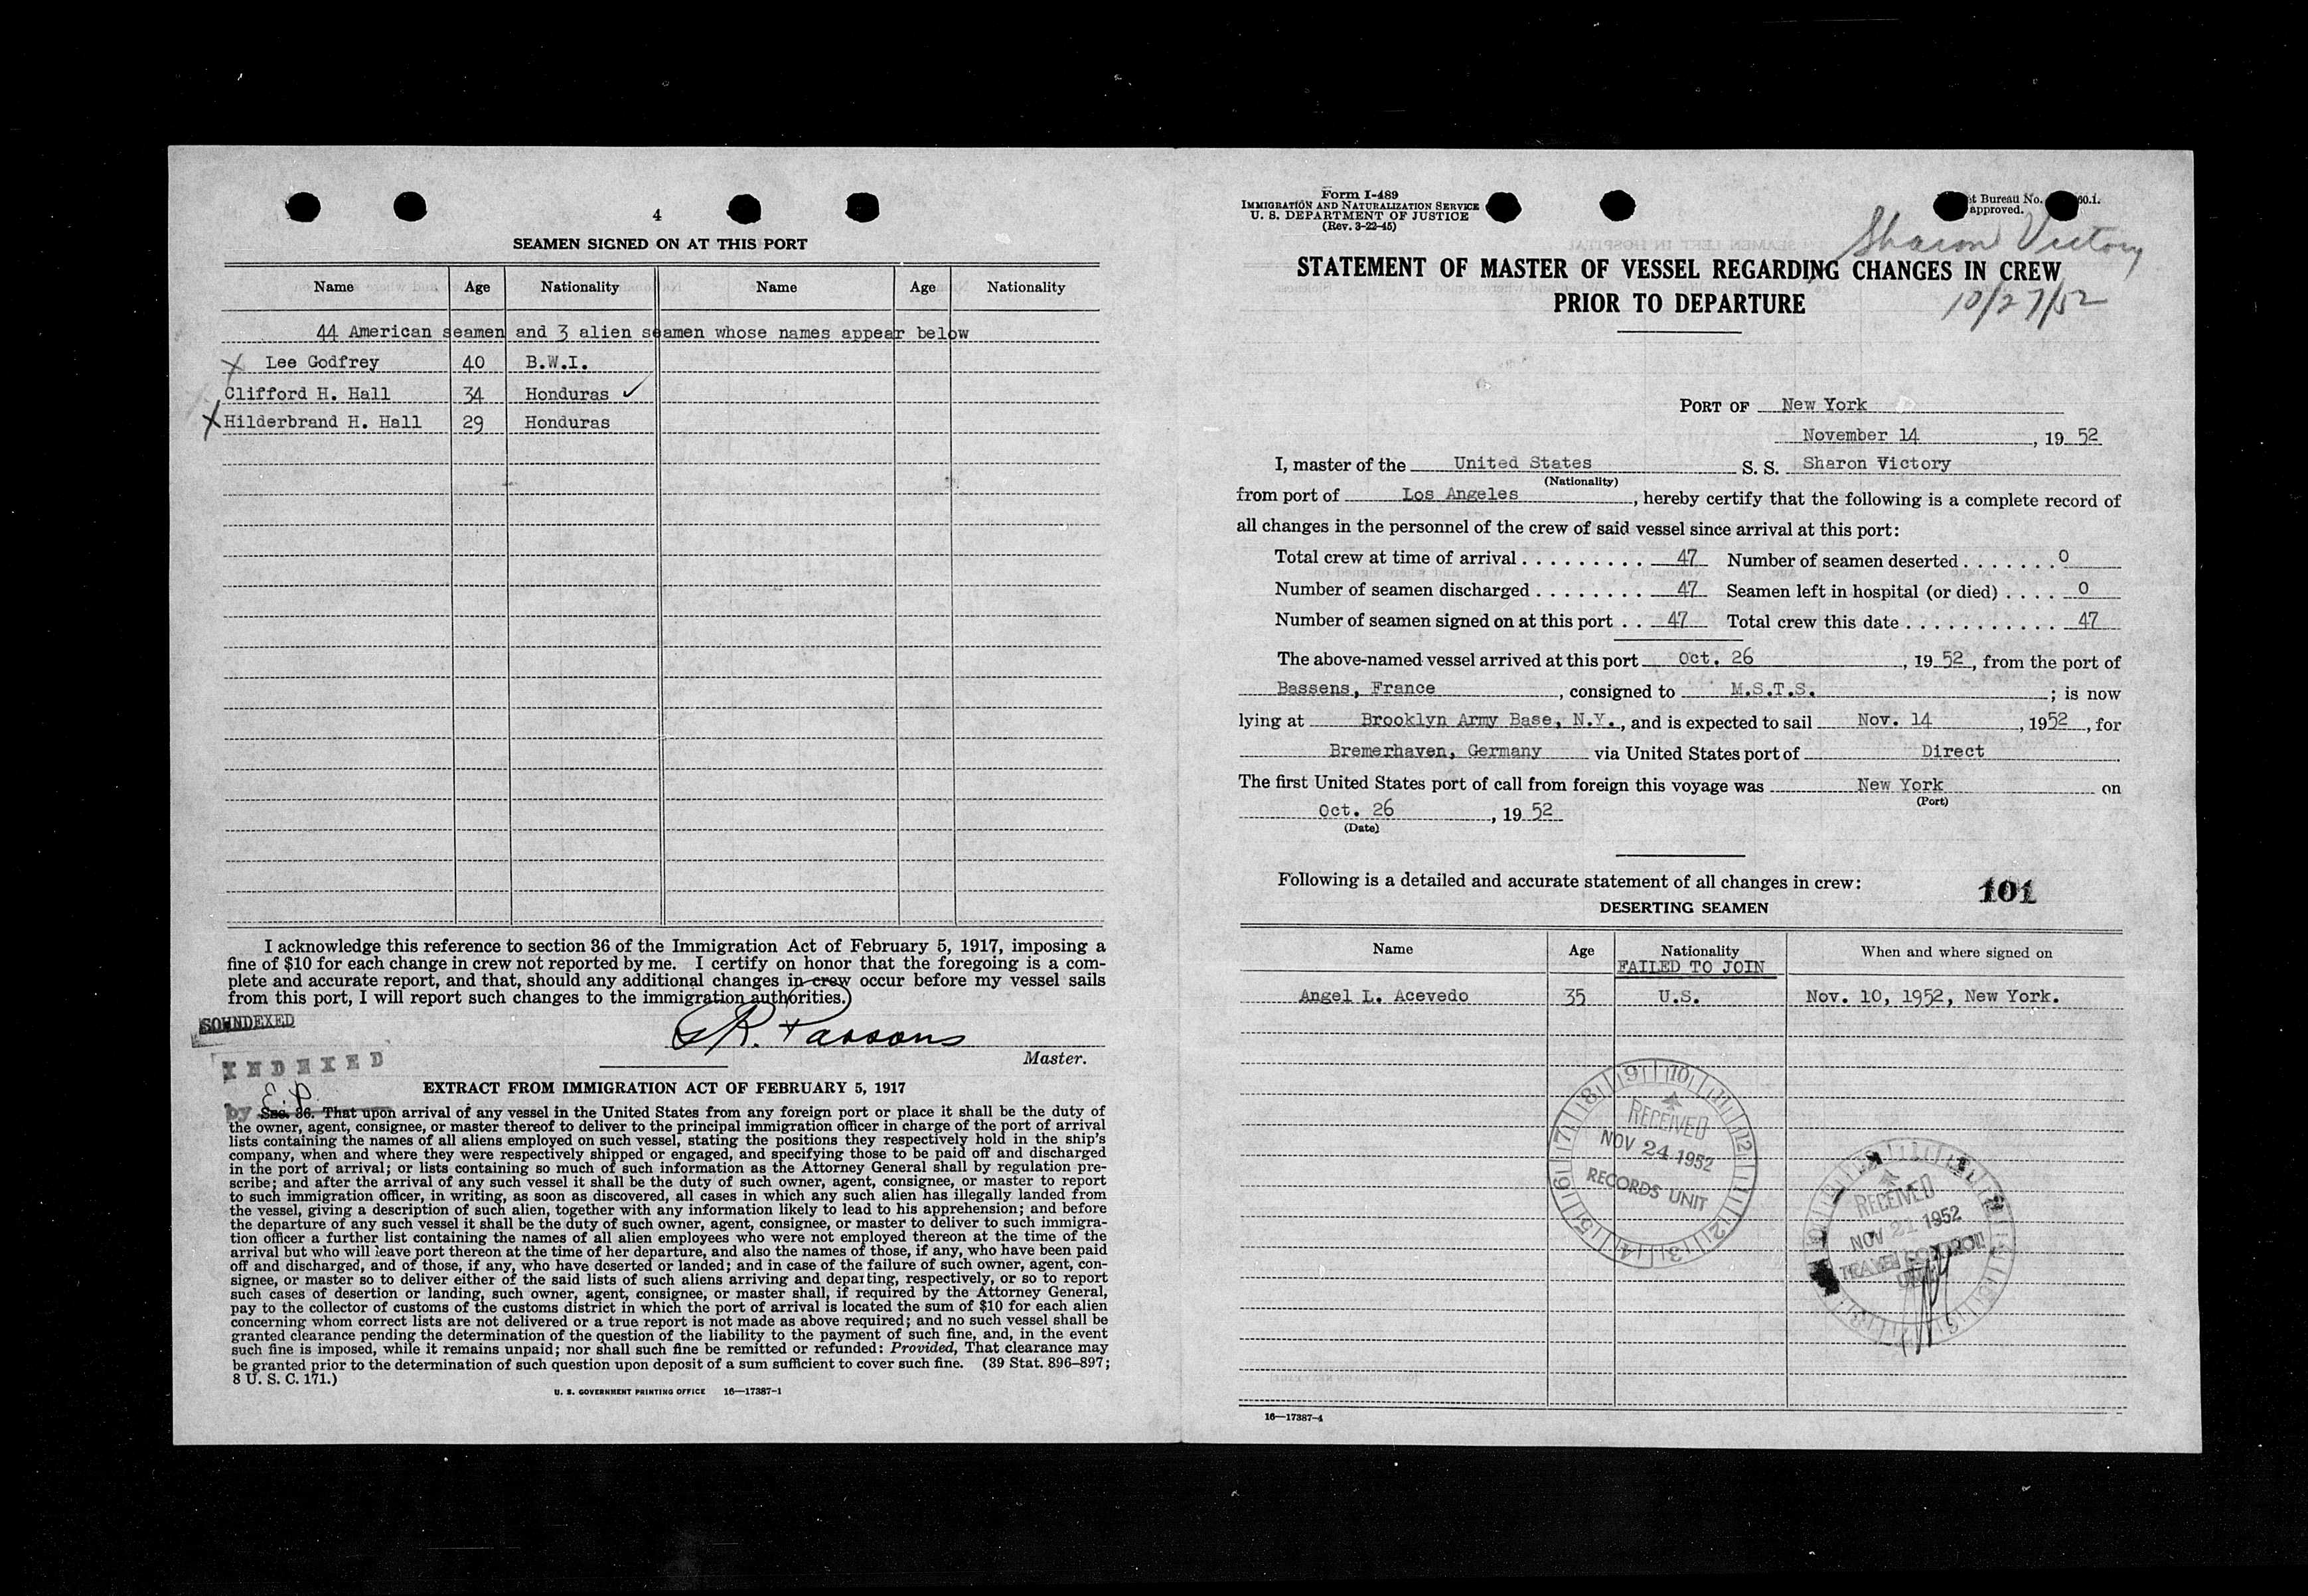 4
SEAMEN SIGNED ON AT THIS PORT
Name Age Nationality Name Age Nationality
44 American seamen and 3 alien seamen whose names appear below
X Lee Godfrey 40 B.W.I.
Clifford H. Hall 34 Honduras ✓
X Hilderbrand H. Hall 29 Honduras
I acknowledge this reference to section 36 of the Immigration Act of February 5, 1917, imposing a
fine of $10 for each change in crew not reported by me. I certify on honor that the foregoing is a com-
plete and accurate report, and that, should any additional changes in crew occur before my vessel sails
from this port, I will report such changes to the immigration authorities.
SOUNDEXED
R. Parsons
Master.
INDEXED
by E.P.
EXTRACT FROM IMMIGRATION ACT OF FEBRUARY 5, 1917
Sec. 36. That upon arrival of any vessel in the United States from any foreign port or place it shall be the duty of
the owner, agent, consignee, or master thereof to deliver to the principal immigration officer in charge of the port of arrival
lists containing the names of all aliens employed on such vessel, stating the positions they respectively hold in the ship's
company, when and where they were respectively shipped or engaged, and specifying those to be paid off and discharged
in the port of arrival; or lists containing so much of such information as the Attorney General shall by regulation pre-
scribe; and after the arrival of any such vessel it shall be the duty of such owner, agent, consignee, or master to report
to such immigration officer, in writing, as soon as discovered, all cases in which any such alien has illegally landed from
the vessel, giving a description of such alien, together with any information likely to lead to his apprehension; and before
the departure of any such vessel it shall be the duty of such owner, agent, consignee, or master to deliver to such immigra-
tion officer a further list containing the names of all alien employees who were not employed thereon at the time of the
arrival but who will leave port thereon at the time of her departure, and also the names of those, if any, who have been paid
off and discharged, and of those, if any, who have deserted or landed; and in case of the failure of such owner, agent, con-
signee, or master so to deliver either of the said lists of such aliens arriving and departing, respectively, or so to report
such cases of desertion or landing, such owner, agent, consignee, or master shall, if required by the Attorney General,
pay to the collector of customs of the customs district in which the port of arrival is located the sum of $10 for each alien
concerning whom correct lists are not delivered or a true report is not made as above required; and no such vessel shall be
granted clearance pending the determination of the question of the liability to the payment of such fine, and, in the event
such fine is imposed, while it remains unpaid; nor shall such fine be remitted or refunded: Provided, That clearance may
be granted prior to the determination of such question upon deposit of a sum sufficient to cover such fine. (39 Stat. 896–897;
8 U. S. C. 171.)
U. S. GOVERNMENT PRINTING OFFICE 16—17387-1
Form I-489
IMMIGRATION AND NATURALIZATION SERVICE
U. S. DEPARTMENT OF JUSTICE
(Rev. 3-22-45)
Bureau No.
approved.
Sharon Victory
10/27/52
STATEMENT OF MASTER OF VESSEL REGARDING CHANGES IN CREW
PRIOR TO DEPARTURE
PORT OF New York
November 14, 19 52
I, master of the United States S. S. Sharon Victory
(Nationality)
from port of Los Angeles, hereby certify that the following is a complete record of
all changes in the personnel of the crew of said vessel since arrival at this port:
Total crew at time of arrival 47 Number of seamen deserted 0
Number of seamen discharged 47 Seamen left in hospital (or died) 0
Number of seamen signed on at this port 47 Total crew this date 47
The above-named vessel arrived at this port Oct. 26, 19 52, from the port of
Bassens, France, consigned to M.S.T.S.; is now
lying at Brooklyn Army Base, N.Y., and is expected to sail Nov. 14, 1952, for
Bremerhaven, Germany via United States port of Direct
The first United States port of call from foreign this voyage was New York on
(Port)
Oct. 26, 19 52
(Date)
Following is a detailed and accurate statement of all changes in crew:
101
DESERTING SEAMEN
Name Age Nationality When and where signed on
FAILED TO JOIN
Angel L. Acevedo 35 U.S. Nov. 10, 1952, New York.
RECEIVED
NOV 24 1952
RECORDS UNIT
RECEIVED
NOV 21 1952
TRAVEL CONTROL
UNIT
16—17387-4